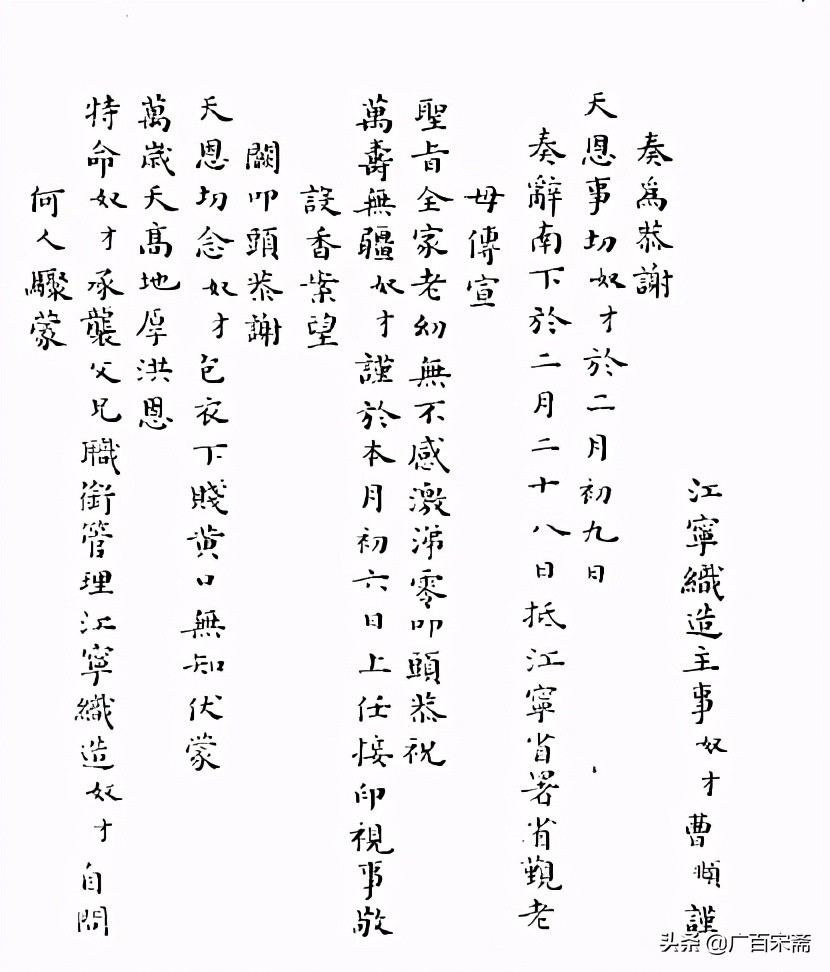 江寧織造主事奴才曹頫謹
奏爲恭謝
天恩事切奴才於二月初九日
奏辭南下於二月二十八日抵江寧省署省覲老
母傳宣
聖旨全家老幼無不感激涕零叩頭恭祝
萬壽無疆奴才謹於本月初六日上任接印視事敬
設香案望
闕叩頭恭謝
天恩切念奴才包衣下賤黃口無知伏蒙
萬歲天高地厚洪恩
特命奴才承襲父兄職銜管理江寧織造奴才自問
何人驟蒙
头条 @广百宋斋